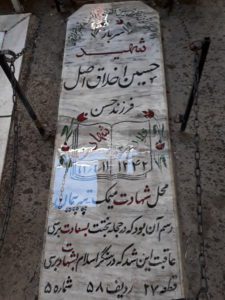 سرباز
شهید
حسین اخلاق اصل
فرزند حسن
۱۳۴۲
محل شهادت میمک تپه
رسم آن بود که در حجله بخت بسعادت برسی
عاقبت این شد که در سنگر اسلام بشهادت برسی
قطعه ۲۷ ردیف ۵۸ شماره ۵